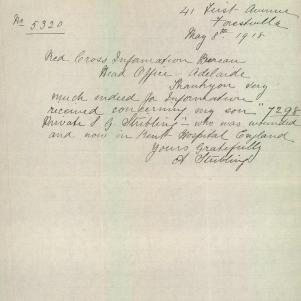 41 First Avenue
No 5320
Forestville
May 8th 1918
Red Cross Information Bureau
Head Office Adelaide
Thankyou very
much indeed for Information
received concerning my son "7298
Private S G Stribling" - who was wounded
and now in Kent Hospital England
Yours gratefully
A Stribling